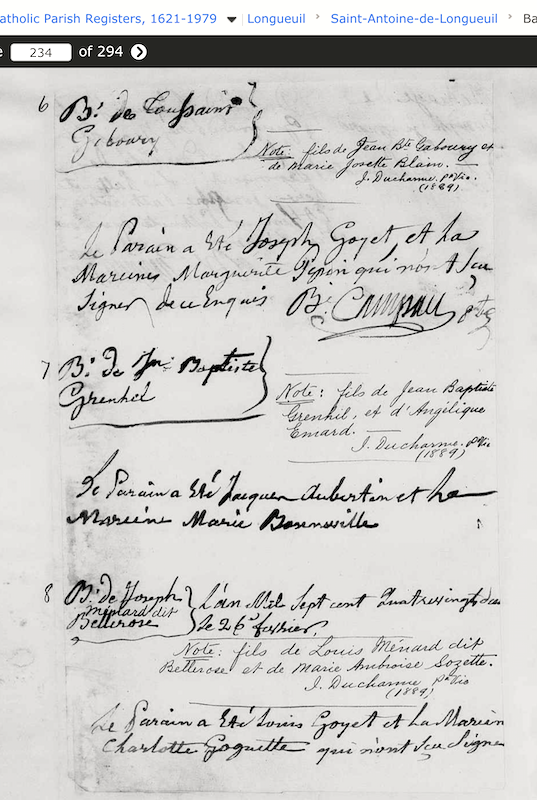 atholic Parish Registers, 1621-1979 Longueuil Saint-Antoine-de-Longueuil Ba
e 234 of 294
6 B. des Toussaint
Geboury
Note: fils de Jean Bte Gaboury et
de Marie Josette Blain.
J. Ducharme, Ptre Vic.
(1889)
Le Parain a Eté Joseph Goyet, et La
Mareines Marguerite Pepin qui nont sçu
Signer de ce Enquis B. Campau
7 B. de Jn. Baptiste
Grenhel
Note: fils de Jean Baptiste
Grenhil, et d'Angélique
Emard.
J. Ducharme, Ptre Vic
(1889)
Le Parain a Eté Jacques Aubertin et La
Mareine Marie Bonneville
8 B. de Joseph
Ménard dit
Bellerose
L'an Mil Sept cent Quatrevingt
le 26
Note: fils de Louis Ménard dit
Bellerose et de Marie Ambroise Sozette.
J. Ducharme, Ptre Vic
(1889)
Le Parain a Eté Louis Goyet et La Marein
Charlotte Goguette qui n'ont sçu Signe